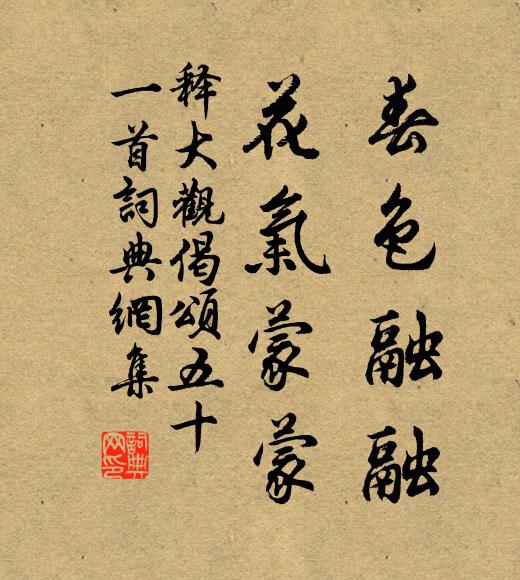 春色融融
花氣蒙蒙
释大觀偈頌五十
一首詞典網集
詞典
网印